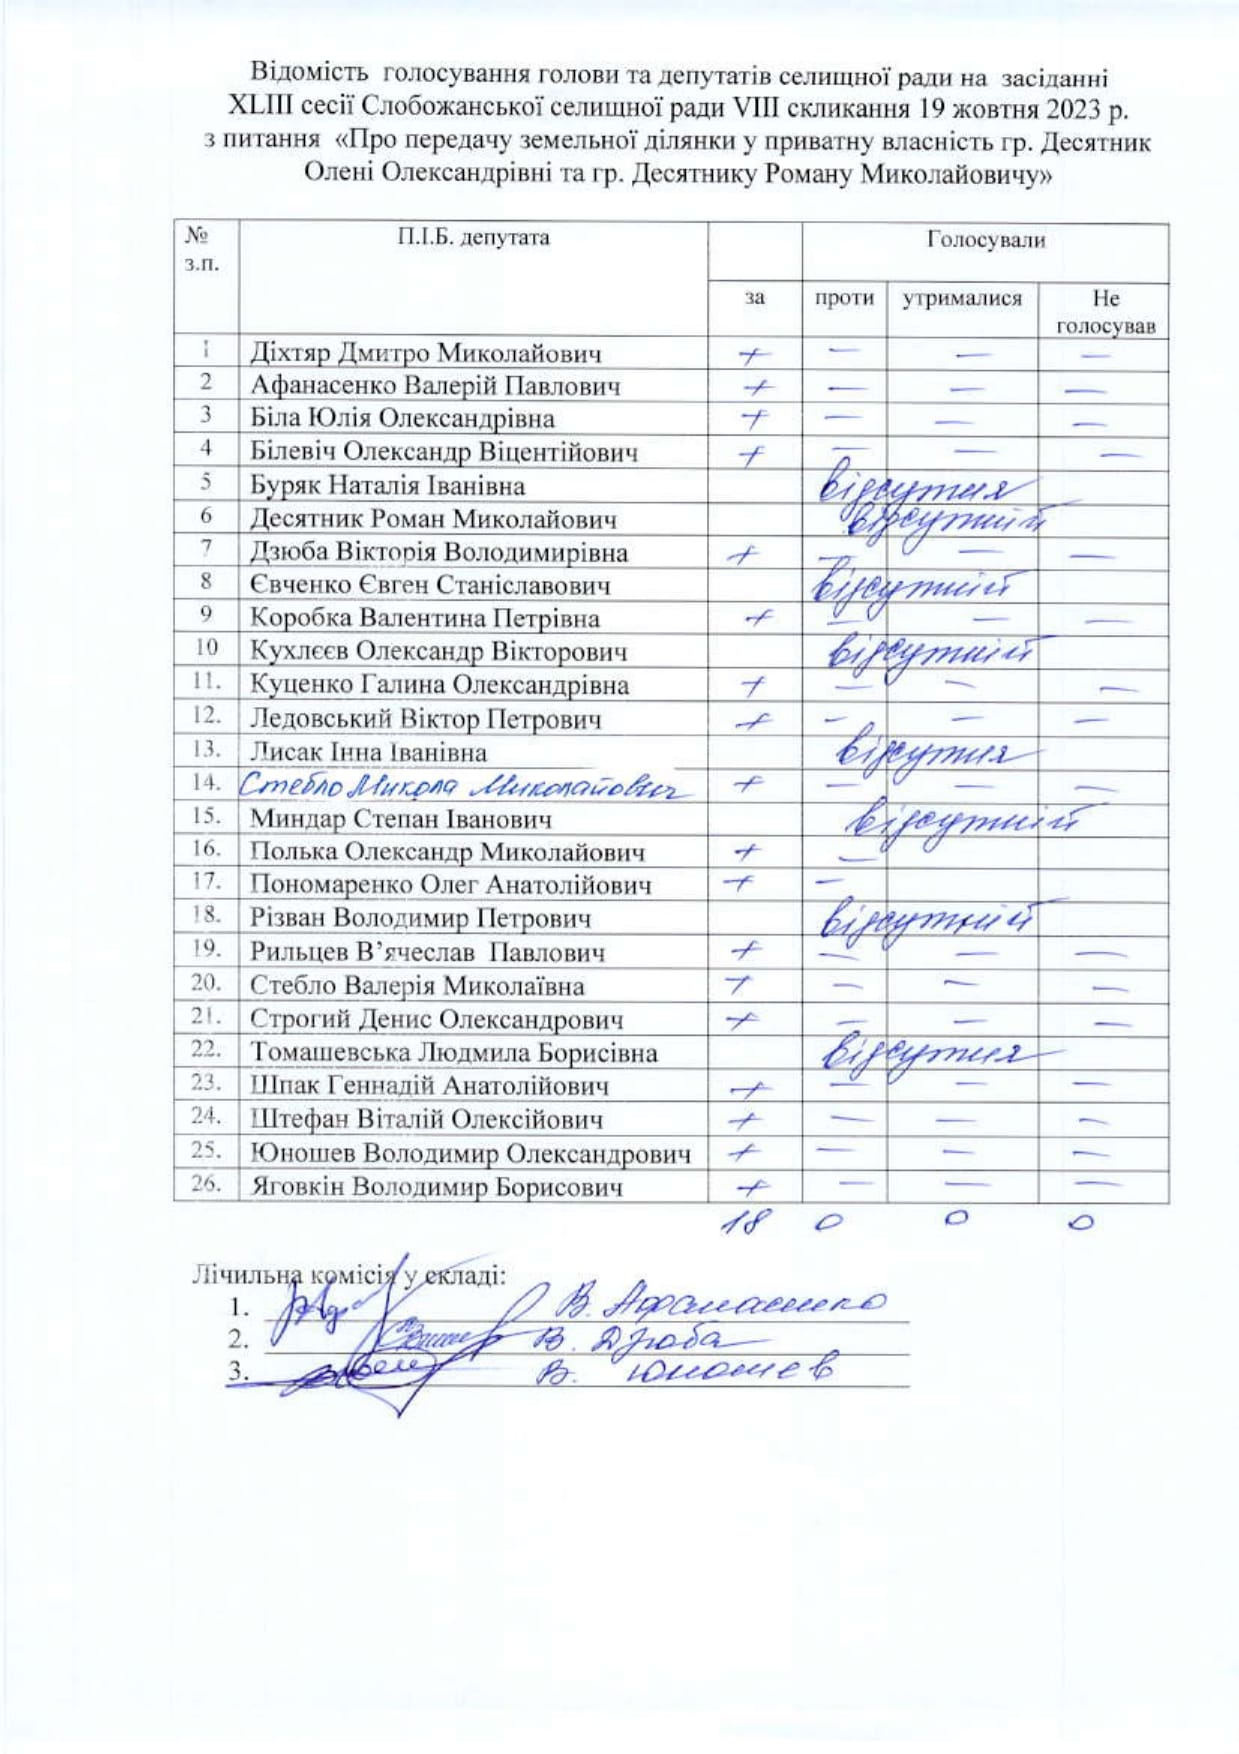 Відомість голосування голови та депутатів селищної ради на засіданні
XLIII сесії Слобожанської селищної ради VIII скликання 19 жовтня 2023 р.
з питання «Про передачу земельної ділянки у приватну власність гр. Десятник
Олені Олександрівні та гр. Десятнику Роману Миколайовичу»
№ з.п. П.І.Б. депутата Голосували
за проти утрималися Не голосував
1 Діхтяр Дмитро Миколайович + — — —
2 Афанасенко Валерій Павлович + — — —
3 Біла Юлія Олександрівна + — — —
4 Білевіч Олександр Віцентійович + — — —
5 Буряк Наталія Іванівна відсутня
6 Десятник Роман Миколайович відсутній
7 Дзюба Вікторія Володимирівна + — — —
8 Євченко Євген Станіславович відсутній
9 Коробка Валентина Петрівна + — — —
10 Кухлєєв Олександр Вікторович відсутній
11. Куценко Галина Олександрівна + — — —
12. Ледовський Віктор Петрович + — — —
13. Лисак Інна Іванівна відсутня
14. Стебло Микола Миколайович + — — —
15. Миндар Степан Іванович відсутній
16. Полька Олександр Миколайович + —
17. Пономаренко Олег Анатолійович + —
18. Різван Володимир Петрович відсутній
19. Рильцев В’ячеслав Павлович + — — —
20. Стебло Валерія Миколаївна + — — —
21. Строгий Денис Олександрович + — — —
22. Томашевська Людмила Борисівна відсутня
23. Шпак Геннадій Анатолійович + — — —
24. Штефан Віталій Олексійович + — — —
25. Юношев Володимир Олександрович + — — —
26. Яговкін Володимир Борисович + — — —
18 0 0 0
Лічильна комісія у складі:
1. В. Афанасенко
2. В. Дзюба
3. В. Юношев